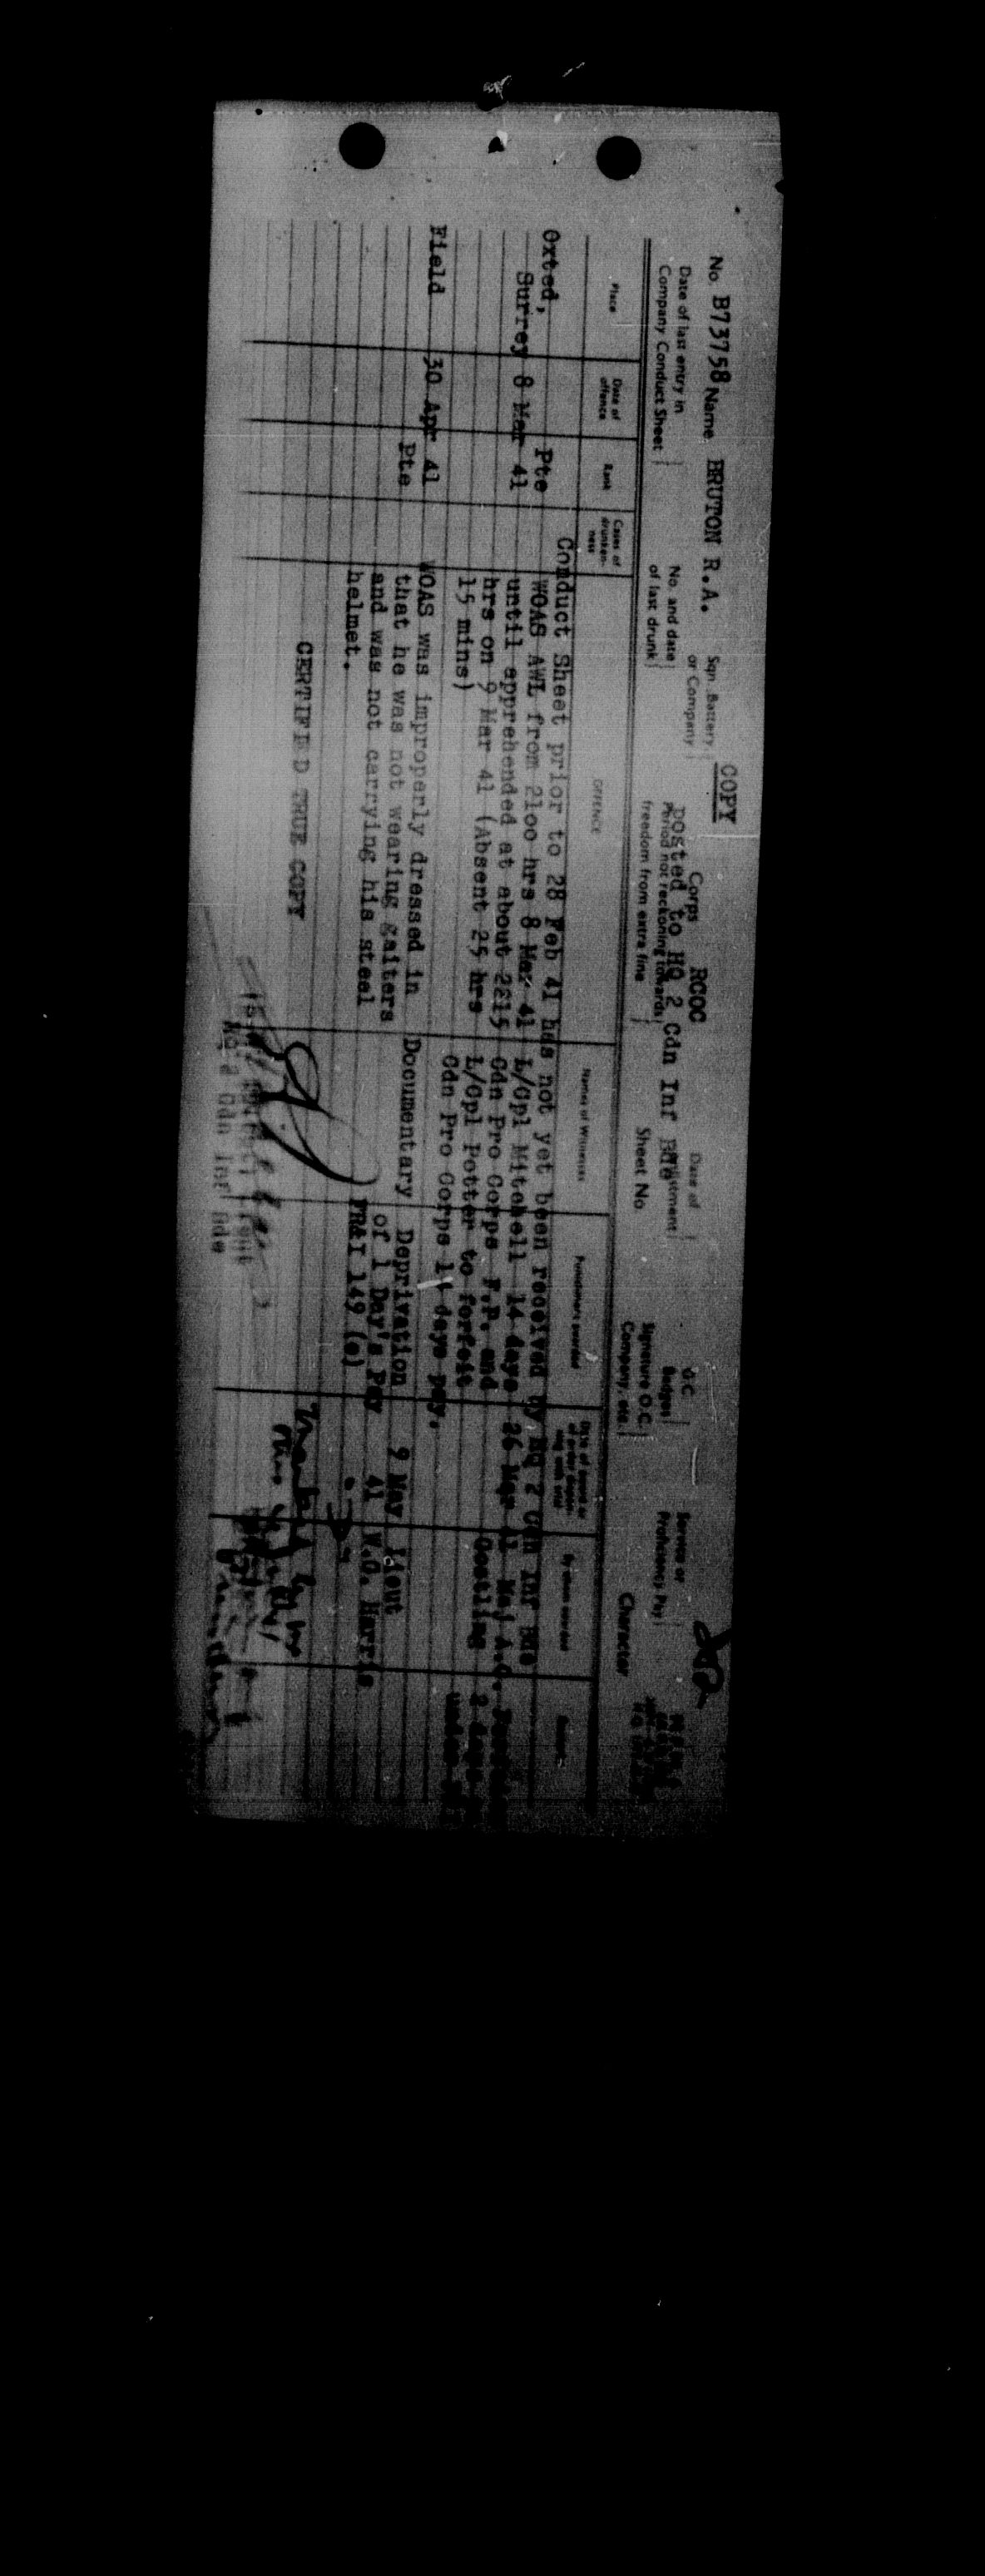 COPY
No. B73758 Name BRUTON R.A. Sqn. Battery or Company Corps RCOC Date of O.C.
posted to HQ 2 Cdn Inf Bde
Date of last entry in Company Conduct Sheet No. and date of last drunk Period not reckoning towards freedom from extra fine Sheet No. Badges Service or Proficiency Pay
Signature O.C. Company, etc. Character
Place Date of offence Rank Cases of drunkenness OFFENCE Names of Witnesses Punishment awarded By whom awarded
Conduct Sheet prior to 28 Feb 41 has not yet been received by Hq 2 Cdn Inf Bde
Oxted, Pte WOAS AWL from 2100 hrs 8 Mar 41 L/Cpl Mitchell 14 days 26 Mar Maj A.C.
Surrey 8 Mar 41 until apprehended at about 2215 Cdn Pro Corps F.P. and Gostling
hrs on 9 Mar 41 (Absent 25 hrs L/Cpl Potter to forfeit
15 mins) Cdn Pro Corps 14 days pay.
Field 30 Apr 41 WOAS was improperly dressed in Documentary Deprivation 9 May Lieut
Pte that he was not wearing gaiters of 1 Day's Pay 41 W.O. Harris
and was not carrying his steel FR&I 149 (e)
helmet.
CERTIFIED TRUE COPY
Cdn Inf Bde